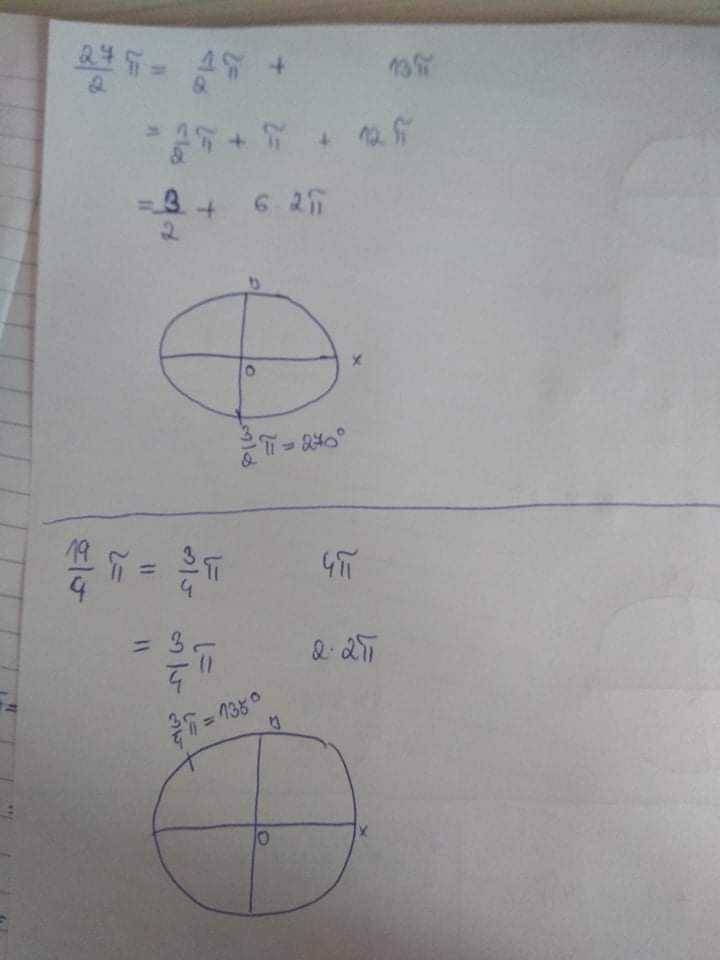 27/2 π = 1/2 π + 13π
= 1/2 π + π + 12π
= 3/2 + 6·2π
O
x
3/2 π = 270°
19/4 π = 3/4 π 4π
= 3/4 π 2·2π
3/4 π = 135°
O
x